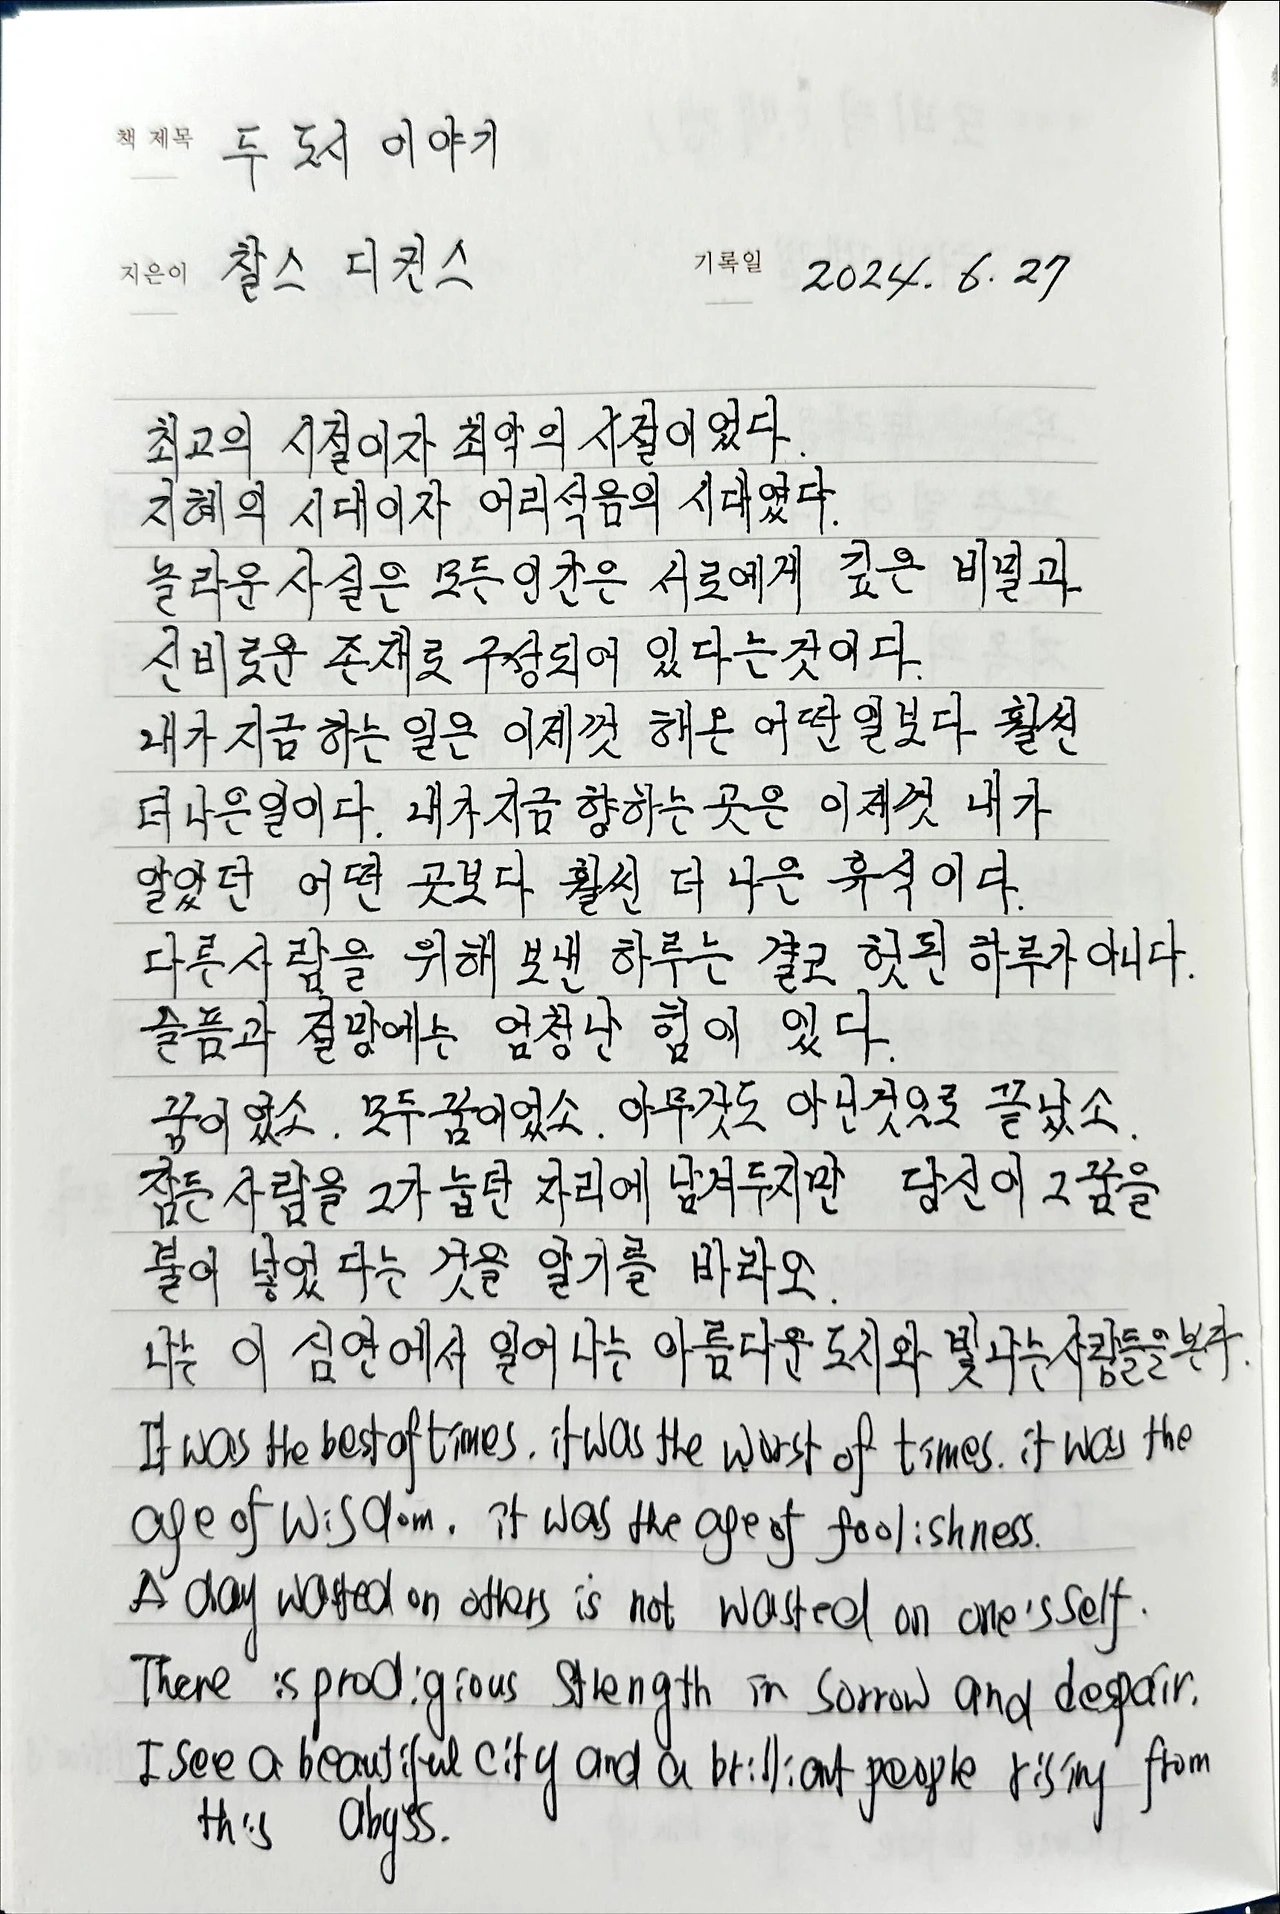 책 제목 두 도시 이야기
지은이 찰스 디킨스 기록일 2024. 6. 27
최고의 시절이자 최악의 시절이었다.
지혜의 시대이자 어리석음의 시대였다.
놀라운 사실은 모든 인간은 서로에게 깊은 비밀과
신비로운 존재로 구성되어 있다는것이다.
내가 지금 하는 일은 이제껏 해온 어떤 일보다 훨씬
더 나은일이다. 내가 지금 향하는 곳은 이제껏 내가
알았던 어떤 곳보다 훨씬 더 나은 휴식이다.
다른사람을 위해 보낸 하루는 결코 헛된 하루가 아니다.
슬픔과 절망에는 엄청난 힘이 있다.
꿈이었소. 모두 꿈이었소. 아무것도 아닌것으로 끝났소.
잠든 사람을 그가 눕던 자리에 남겨두지만 당신이 그 꿈을
불어 넣었다는 것을 알기를 바라오.
나는 이 심연에서 일어나는 아름다운 도시와 빛나는 사람들을 본다.
It was the best of times. it was the worst of times. it was the
age of wisdom. it was the age of foolishness.
A day wasted on others is not wasted on one's self.
There is prodigious strength in sorrow and despair.
I see a beautiful city and a brilliant people rising from
this abyss.